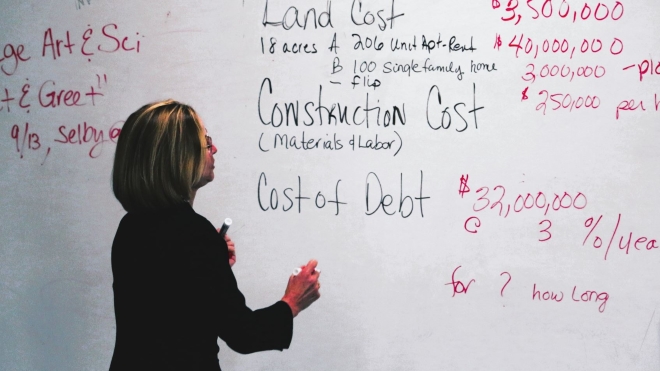 ge Art & Sci
t & Greet"
9/13, Selby
Land Cost $3,500,000
18 acres A 206 Unit Apt-Rent $40,000,000
B 100 Single family home 3,000,000
- flip
$250,000 per
Construction Cost
(Materials & Labor)
Cost of Debt $32,000,000
@ 3 %/yea
for ? how long